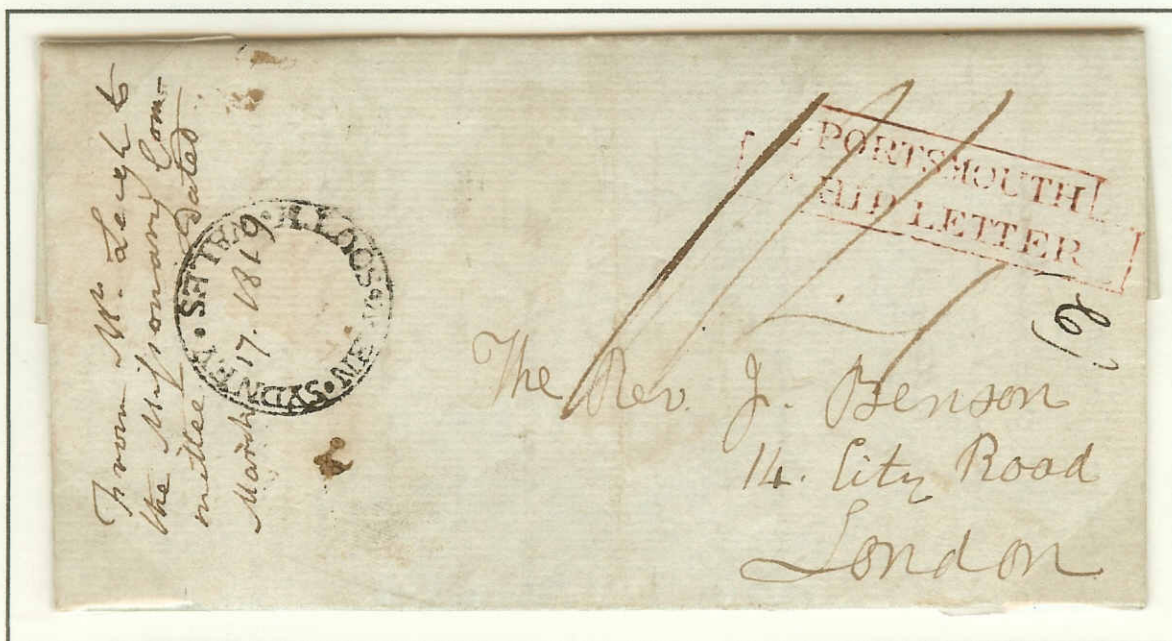 From Mr. Leigh to
the Missionary Com-
mittee dated
March 17. 1819
SYDNEY · NEW · SOUTH · WALES
PORTSMOUTH
SHIP LETTER
The Rev. J. Benson
14. City Road
London